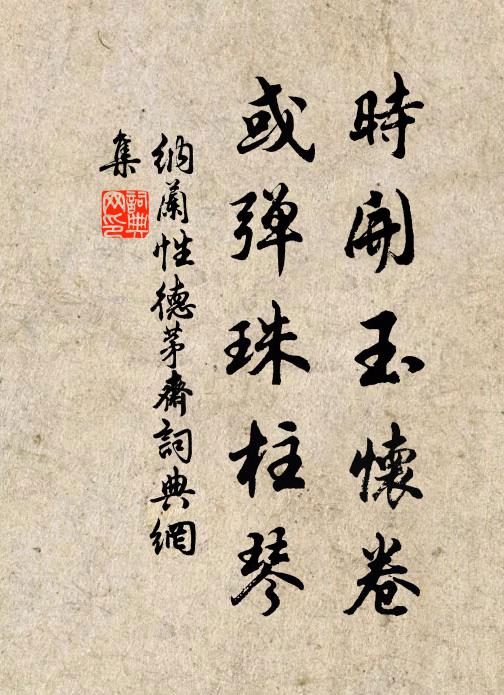 時開玉懷卷
或彈珠柱琴
納蘭性德茅齋詞典網
集
詞典网印